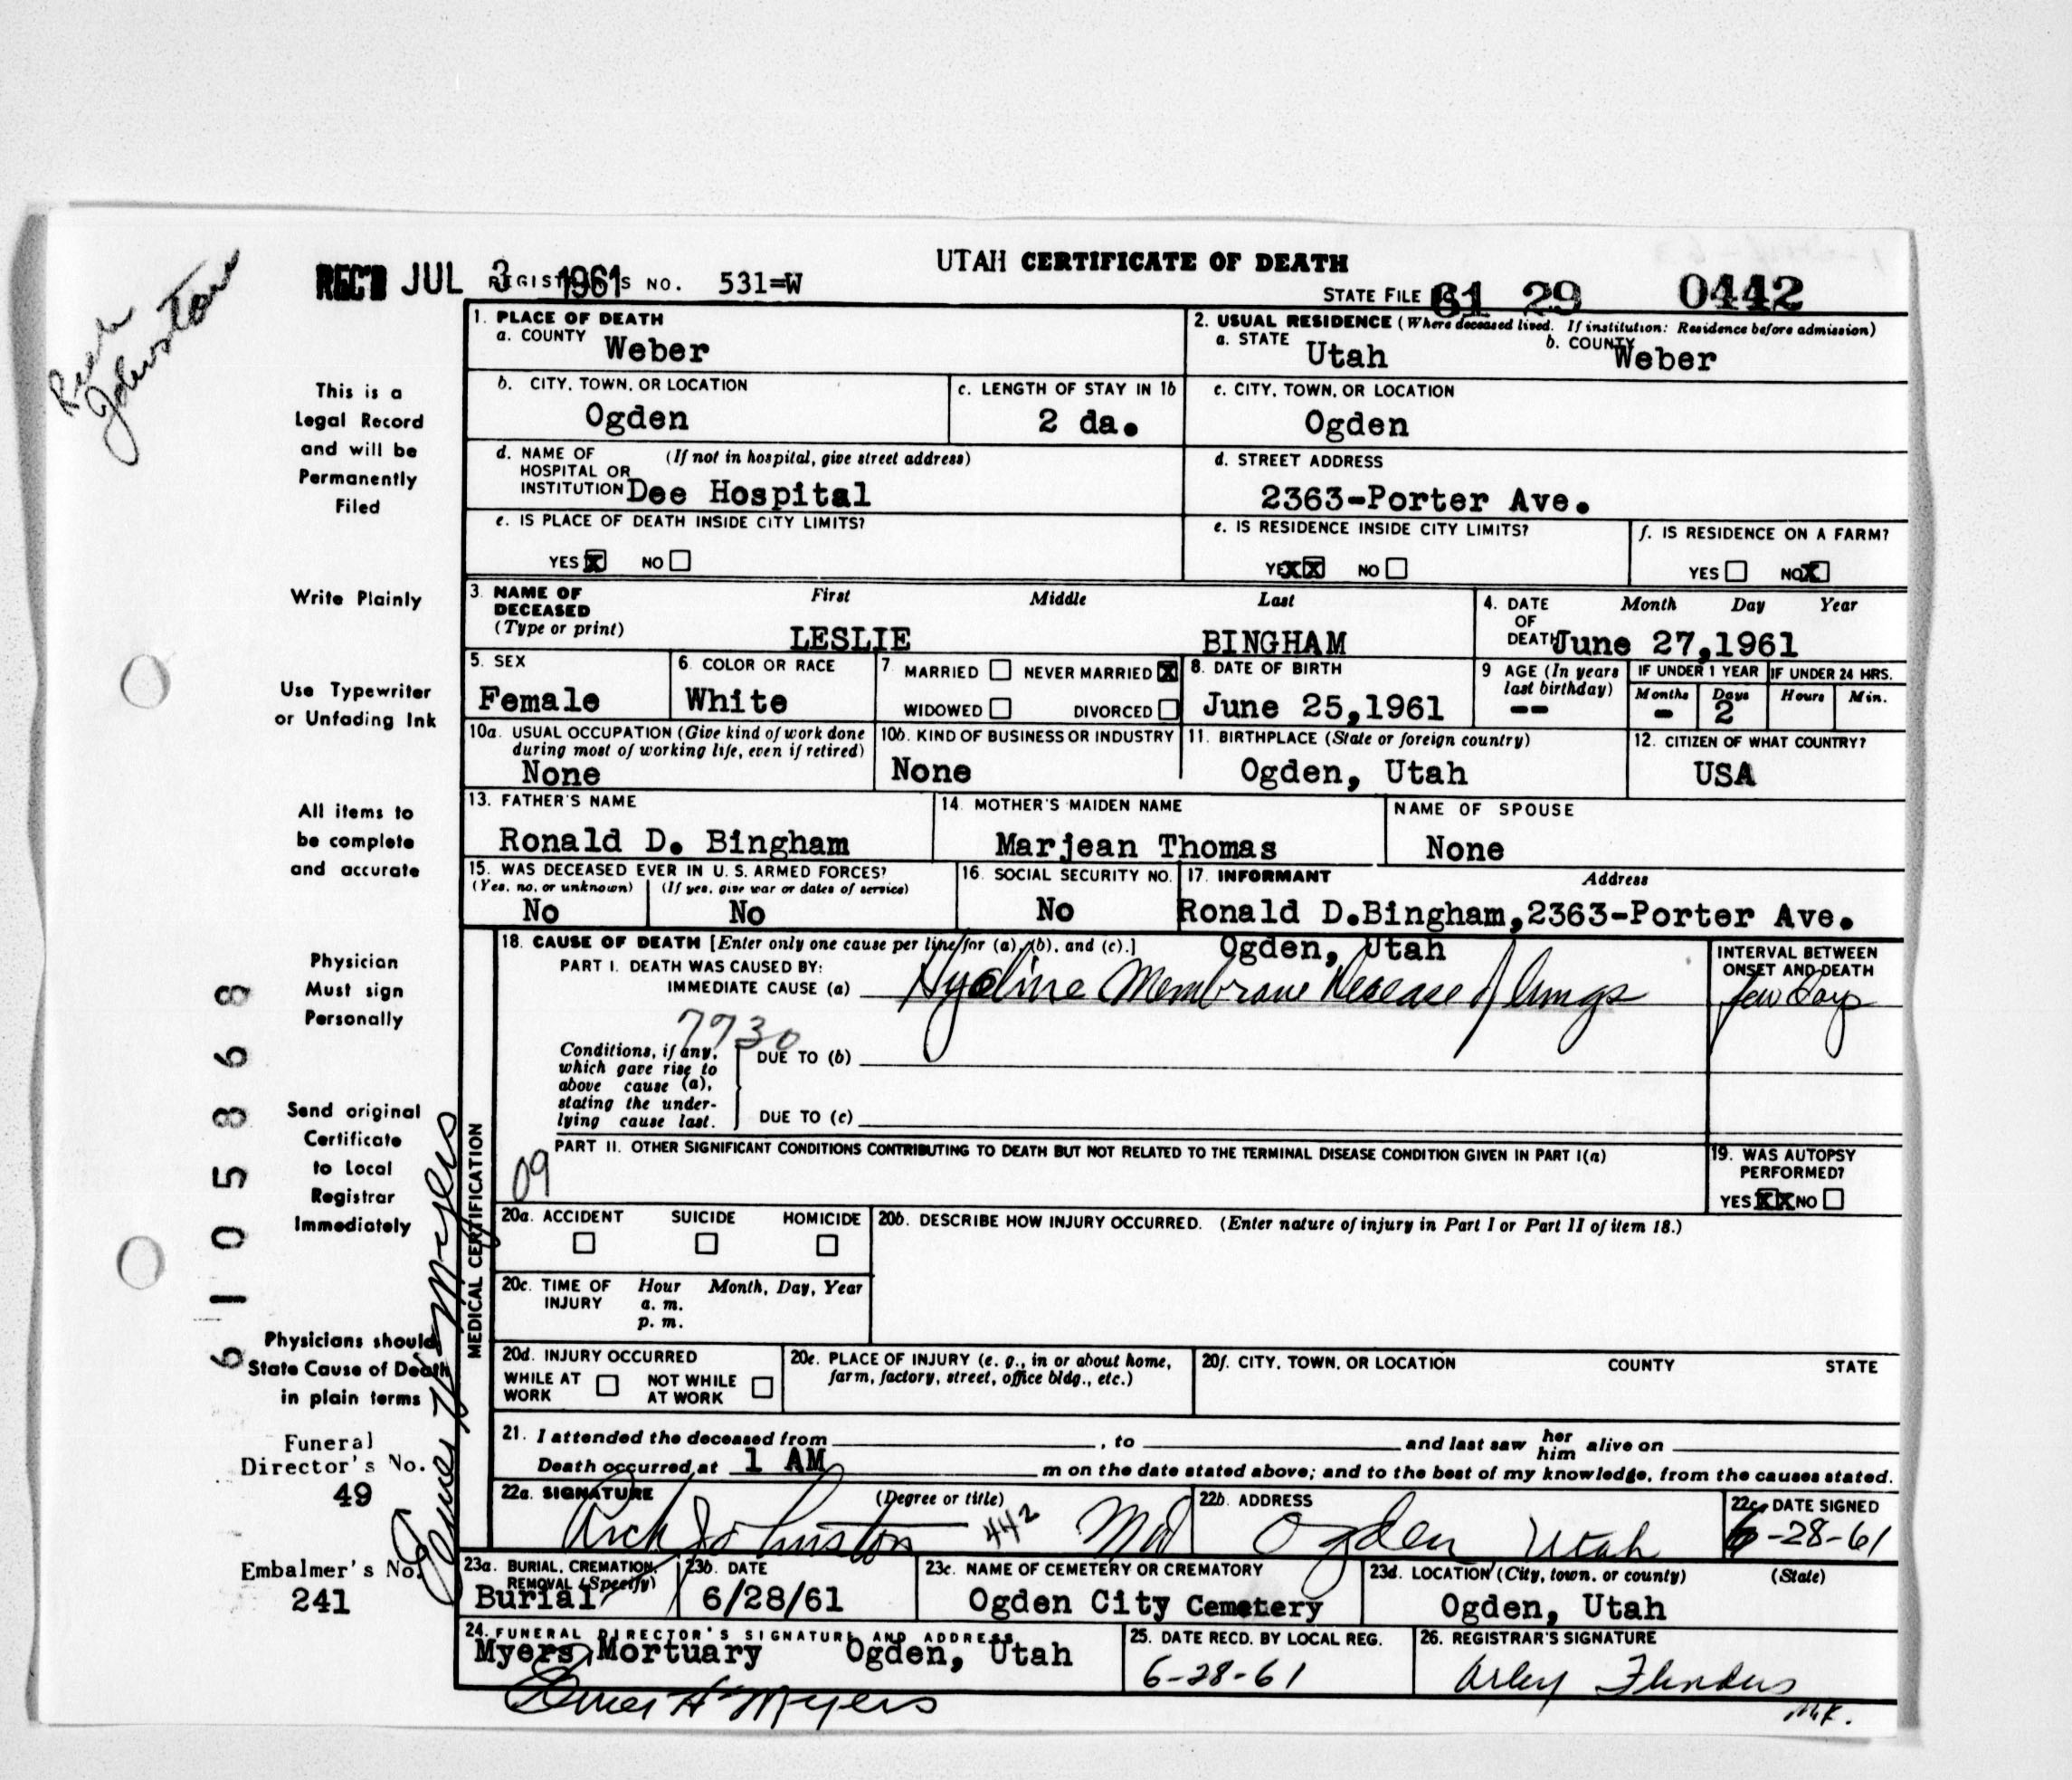 UTAH CERTIFICATE OF DEATH
REC'D JUL 3 1961 REGISTRAR'S NO. 531=W
STATE FILE 61 29 0442
Johnston
This is a
Legal Record
and will be
Permanently
Filed
Write Plainly
Use Typewriter
or Unfading Ink
All items to
be complete
and accurate
Physician
Must sign
Personally
Send original
Certificate
to Local
Registrar
Immediately
Physicians should
State Cause of Death
in plain terms
Funeral
Director's No.
49
Embalmer's No.
241
6105868
1. PLACE OF DEATH
a. COUNTY Weber
2. USUAL RESIDENCE (Where deceased lived. If institution: Residence before admission)
a. STATE Utah b. COUNTY Weber
b. CITY, TOWN, OR LOCATION Ogden
c. LENGTH OF STAY IN 1b 2 da.
c. CITY, TOWN, OR LOCATION Ogden
d. NAME OF HOSPITAL OR INSTITUTION (If not in hospital, give street address) Dee Hospital
d. STREET ADDRESS 2363-Porter Ave.
e. IS PLACE OF DEATH INSIDE CITY LIMITS?
YES X NO
e. IS RESIDENCE INSIDE CITY LIMITS?
YES XX NO
f. IS RESIDENCE ON A FARM?
YES NO X
3. NAME OF DECEASED (Type or print) First Middle Last
LESLIE BINGHAM
4. DATE OF DEATH Month Day Year
June 27,1961
5. SEX Female
6. COLOR OR RACE White
7. MARRIED NEVER MARRIED X
WIDOWED DIVORCED
8. DATE OF BIRTH June 25,1961
9 AGE (In years last birthday) --
IF UNDER 1 YEAR Months - Days 2
IF UNDER 24 HRS. Hours Min.
10a. USUAL OCCUPATION (Give kind of work done during most of working life, even if retired)
None
10b. KIND OF BUSINESS OR INDUSTRY
None
11. BIRTHPLACE (State or foreign country)
Ogden, Utah
12. CITIZEN OF WHAT COUNTRY?
USA
13. FATHER'S NAME
Ronald D. Bingham
14. MOTHER'S MAIDEN NAME
Marjean Thomas
NAME OF SPOUSE
None
15. WAS DECEASED EVER IN U. S. ARMED FORCES?
(Yes, no, or unknown) (If yes, give war or dates of service)
No No
16. SOCIAL SECURITY NO.
No
17. INFORMANT Address
Ronald D.Bingham,2363-Porter Ave.
Ogden, Utah
MEDICAL CERTIFICATION
18. CAUSE OF DEATH [Enter only one cause per line for (a), (b), and (c).]
PART I. DEATH WAS CAUSED BY:
IMMEDIATE CAUSE (a) Hyaline Membrane Disease of lungs
INTERVAL BETWEEN ONSET AND DEATH
few days
7730
Conditions, if any, which gave rise to above cause (a), stating the underlying cause last.
DUE TO (b)
DUE TO (c)
PART II. OTHER SIGNIFICANT CONDITIONS CONTRIBUTING TO DEATH BUT NOT RELATED TO THE TERMINAL DISEASE CONDITION GIVEN IN PART I(a)
09
19. WAS AUTOPSY PERFORMED?
YES XX NO
20a. ACCIDENT SUICIDE HOMICIDE
20b. DESCRIBE HOW INJURY OCCURRED. (Enter nature of injury in Part I or Part II of item 18.)
20c. TIME OF INJURY Hour Month, Day, Year
a. m.
p. m.
20d. INJURY OCCURRED
WHILE AT WORK NOT WHILE AT WORK
20e. PLACE OF INJURY (e. g., in or about home, farm, factory, street, office bldg., etc.)
20f. CITY, TOWN, OR LOCATION COUNTY STATE
21. I attended the deceased from , to and last saw her him alive on
Death occurred at 1 AM m on the date stated above; and to the best of my knowledge, from the causes stated.
22a. SIGNATURE (Degree or title)
Arch Johnston 442 Md
22b. ADDRESS
Ogden Utah
22c. DATE SIGNED
6-28-61
23a. BURIAL, CREMATION, REMOVAL (Specify)
Burial
23b. DATE
6/28/61
23c. NAME OF CEMETERY OR CREMATORY
Ogden City Cemetery
23d. LOCATION (City, town, or county) (State)
Ogden, Utah
24. FUNERAL DIRECTOR'S SIGNATURE AND ADDRESS
Myers Mortuary Ogden, Utah
Elmer H Myers
25. DATE RECD. BY LOCAL REG.
6-28-61
26. REGISTRAR'S SIGNATURE
Arley Flinders
M.K.
Elmer H Myers